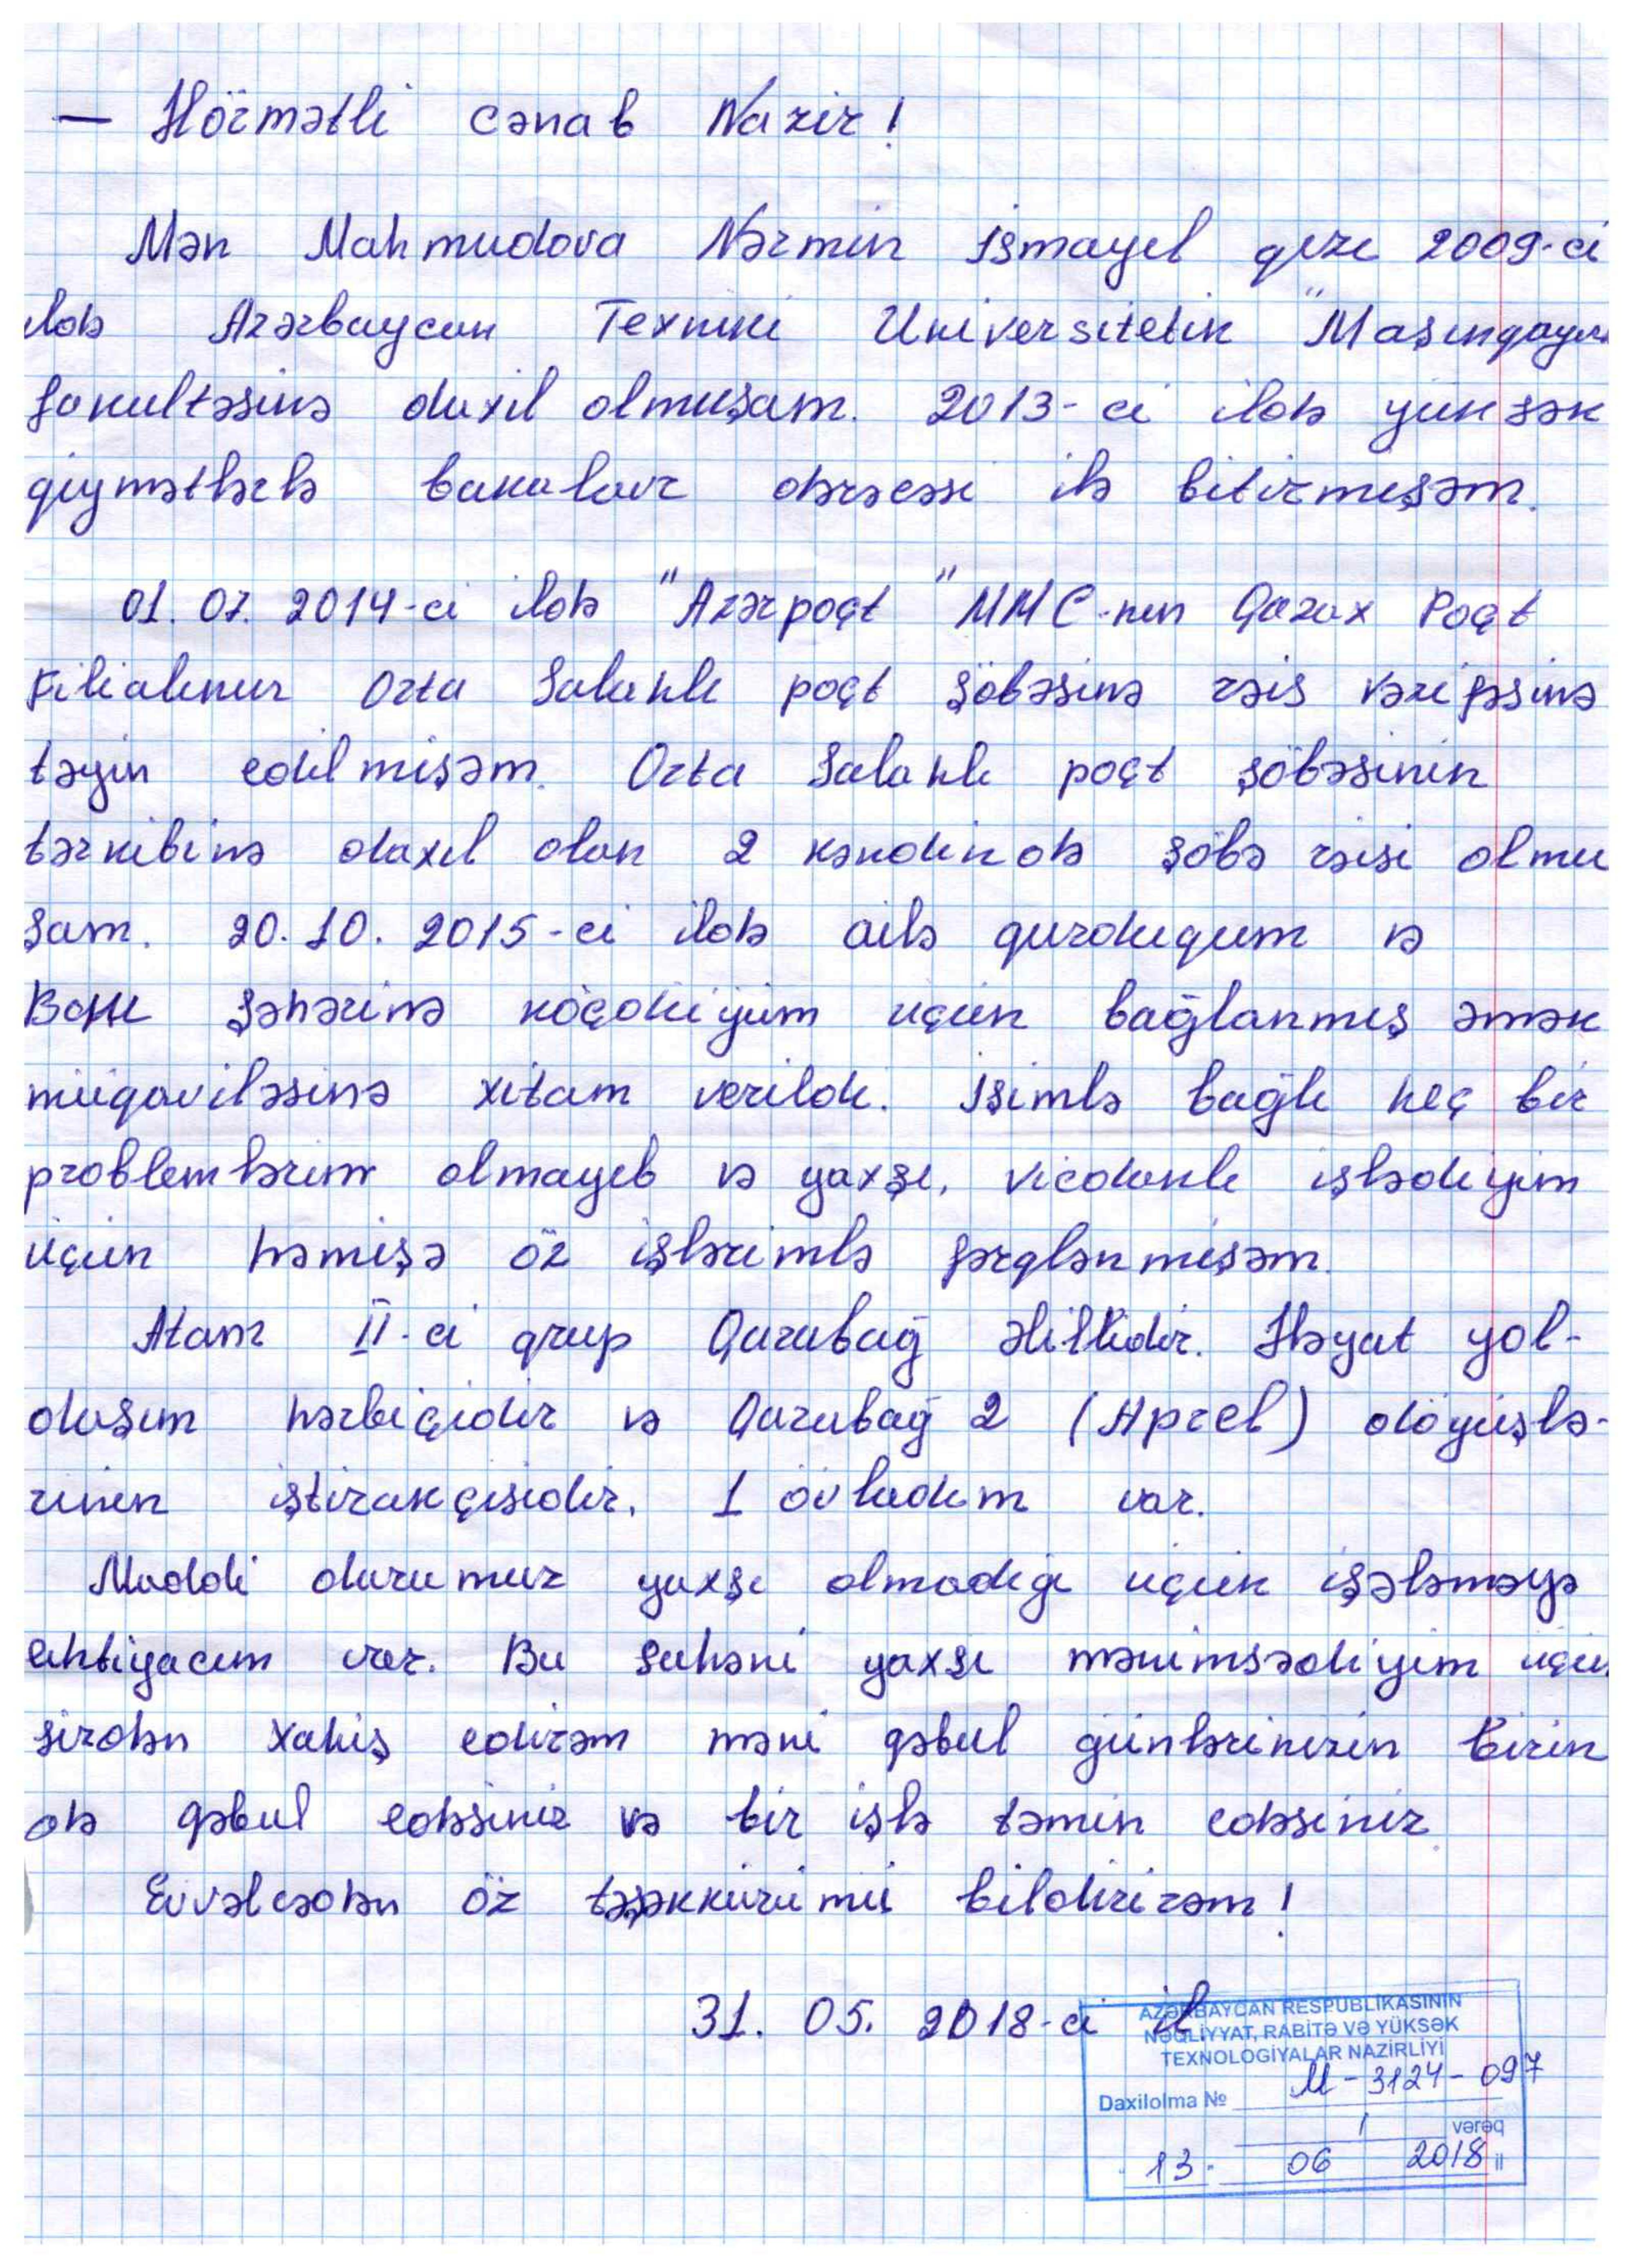 — Hörmətli cənab Nazir!
Mən Mahmudova Nərmin İsmayıl qızı 2009-ci
ildə Azərbaycan Texniki Universitetin "Maşınqayır
fakultəsinə daxil olmuşam. 2013-ci ildə yüksək
qiymətlərlə bakalavr dərəcəsi ilə bitirmişəm.
01.07.2014-ci ildə "Azərpoçt" MMC-nin Qazax Poçt
Filialının Orta Salahlı poçt şöbəsinə rəis vəzifəsinə
təyin edilmişəm. Orta Salahlı poçt şöbəsinin
tərkibinə daxil olan 2 kəndində şöbə rəisi olmu
şam. 20.10.2015-ci ildə ailə qurduqum və
Bakı şəhərinə köçdüyüm üçün bağlanmış əmək
müqaviləsinə xitam verildi. İşimlə bağlı heç bir
problemlərim olmayıb və yaxşı, vicdanlı işlədiyim
üçün həmişə öz işlərimlə fərqlənmişəm.
Atam II-ci qrup Qarabağ əlilidir. Həyat yol-
daşım hərbiçidir və Qarabağ 2 (Aprel) döyüşlə-
rinin iştirakçısıdır. 1 övladım var.
Maddi durumuz yaxşı olmadığı üçün işələməyə
ehtiyacım var. Bu sahəni yaxşı mənimsədiyim üçün
sizdən xahiş edirəm məni qəbul günlərinizin birin
də qəbul edəsiniz və bir işlə təmin edəsiniz
Evvəlcədən öz təşəkkürümü bildirirəm!
31.05.2018-ci il
AZƏRBAYCAN RESPUBLİKASININ
NƏQLİYYAT, RABİTƏ VƏ YÜKSƏK
TEXNOLOGİYALAR NAZİRLİYİ
Daxilolma № M-3124-097
1 vərəq
13. 06 2018 il